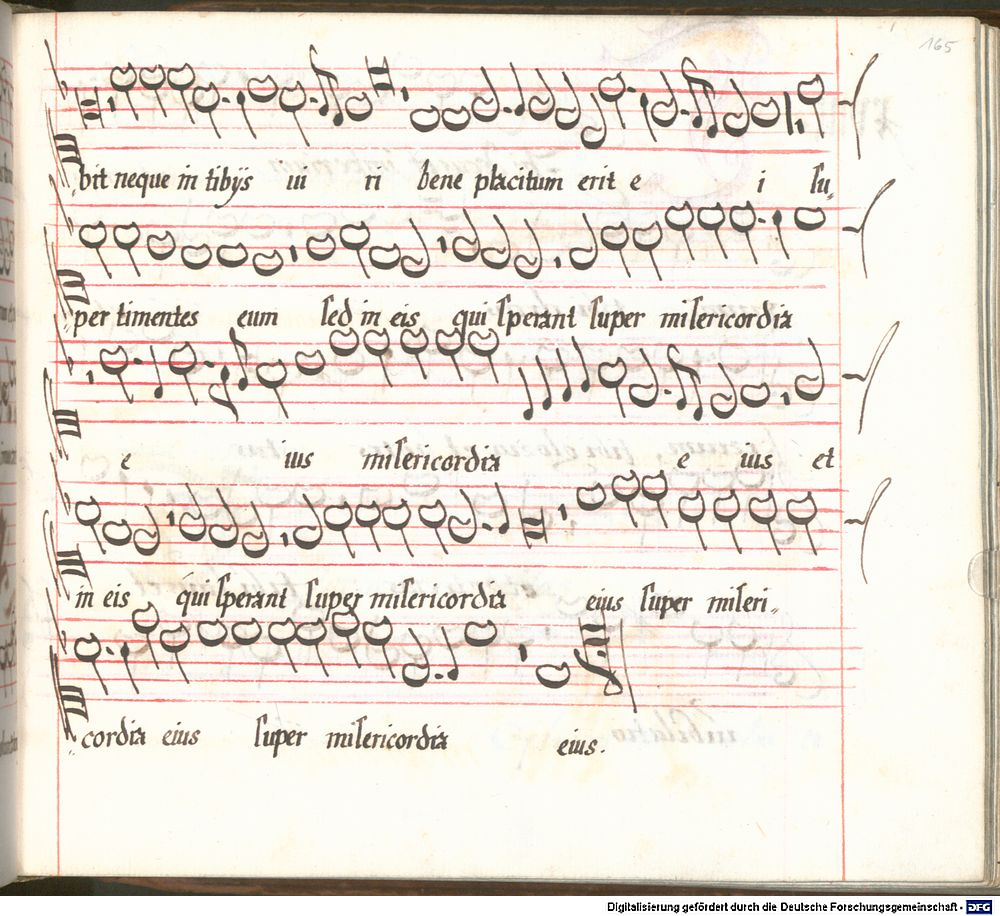 165
bit neque in tibijs ui ri bene placitum erit e i su
per timentes eum sed in eis qui sperant super misericordia
e ius misericordia e ius et
in eis qui sperant super misericordia eius super miseri
cordia eius super misericordia eius.
Digitalisierung gefördert durch die Deutsche Forschungsgemeinschaft - DFG